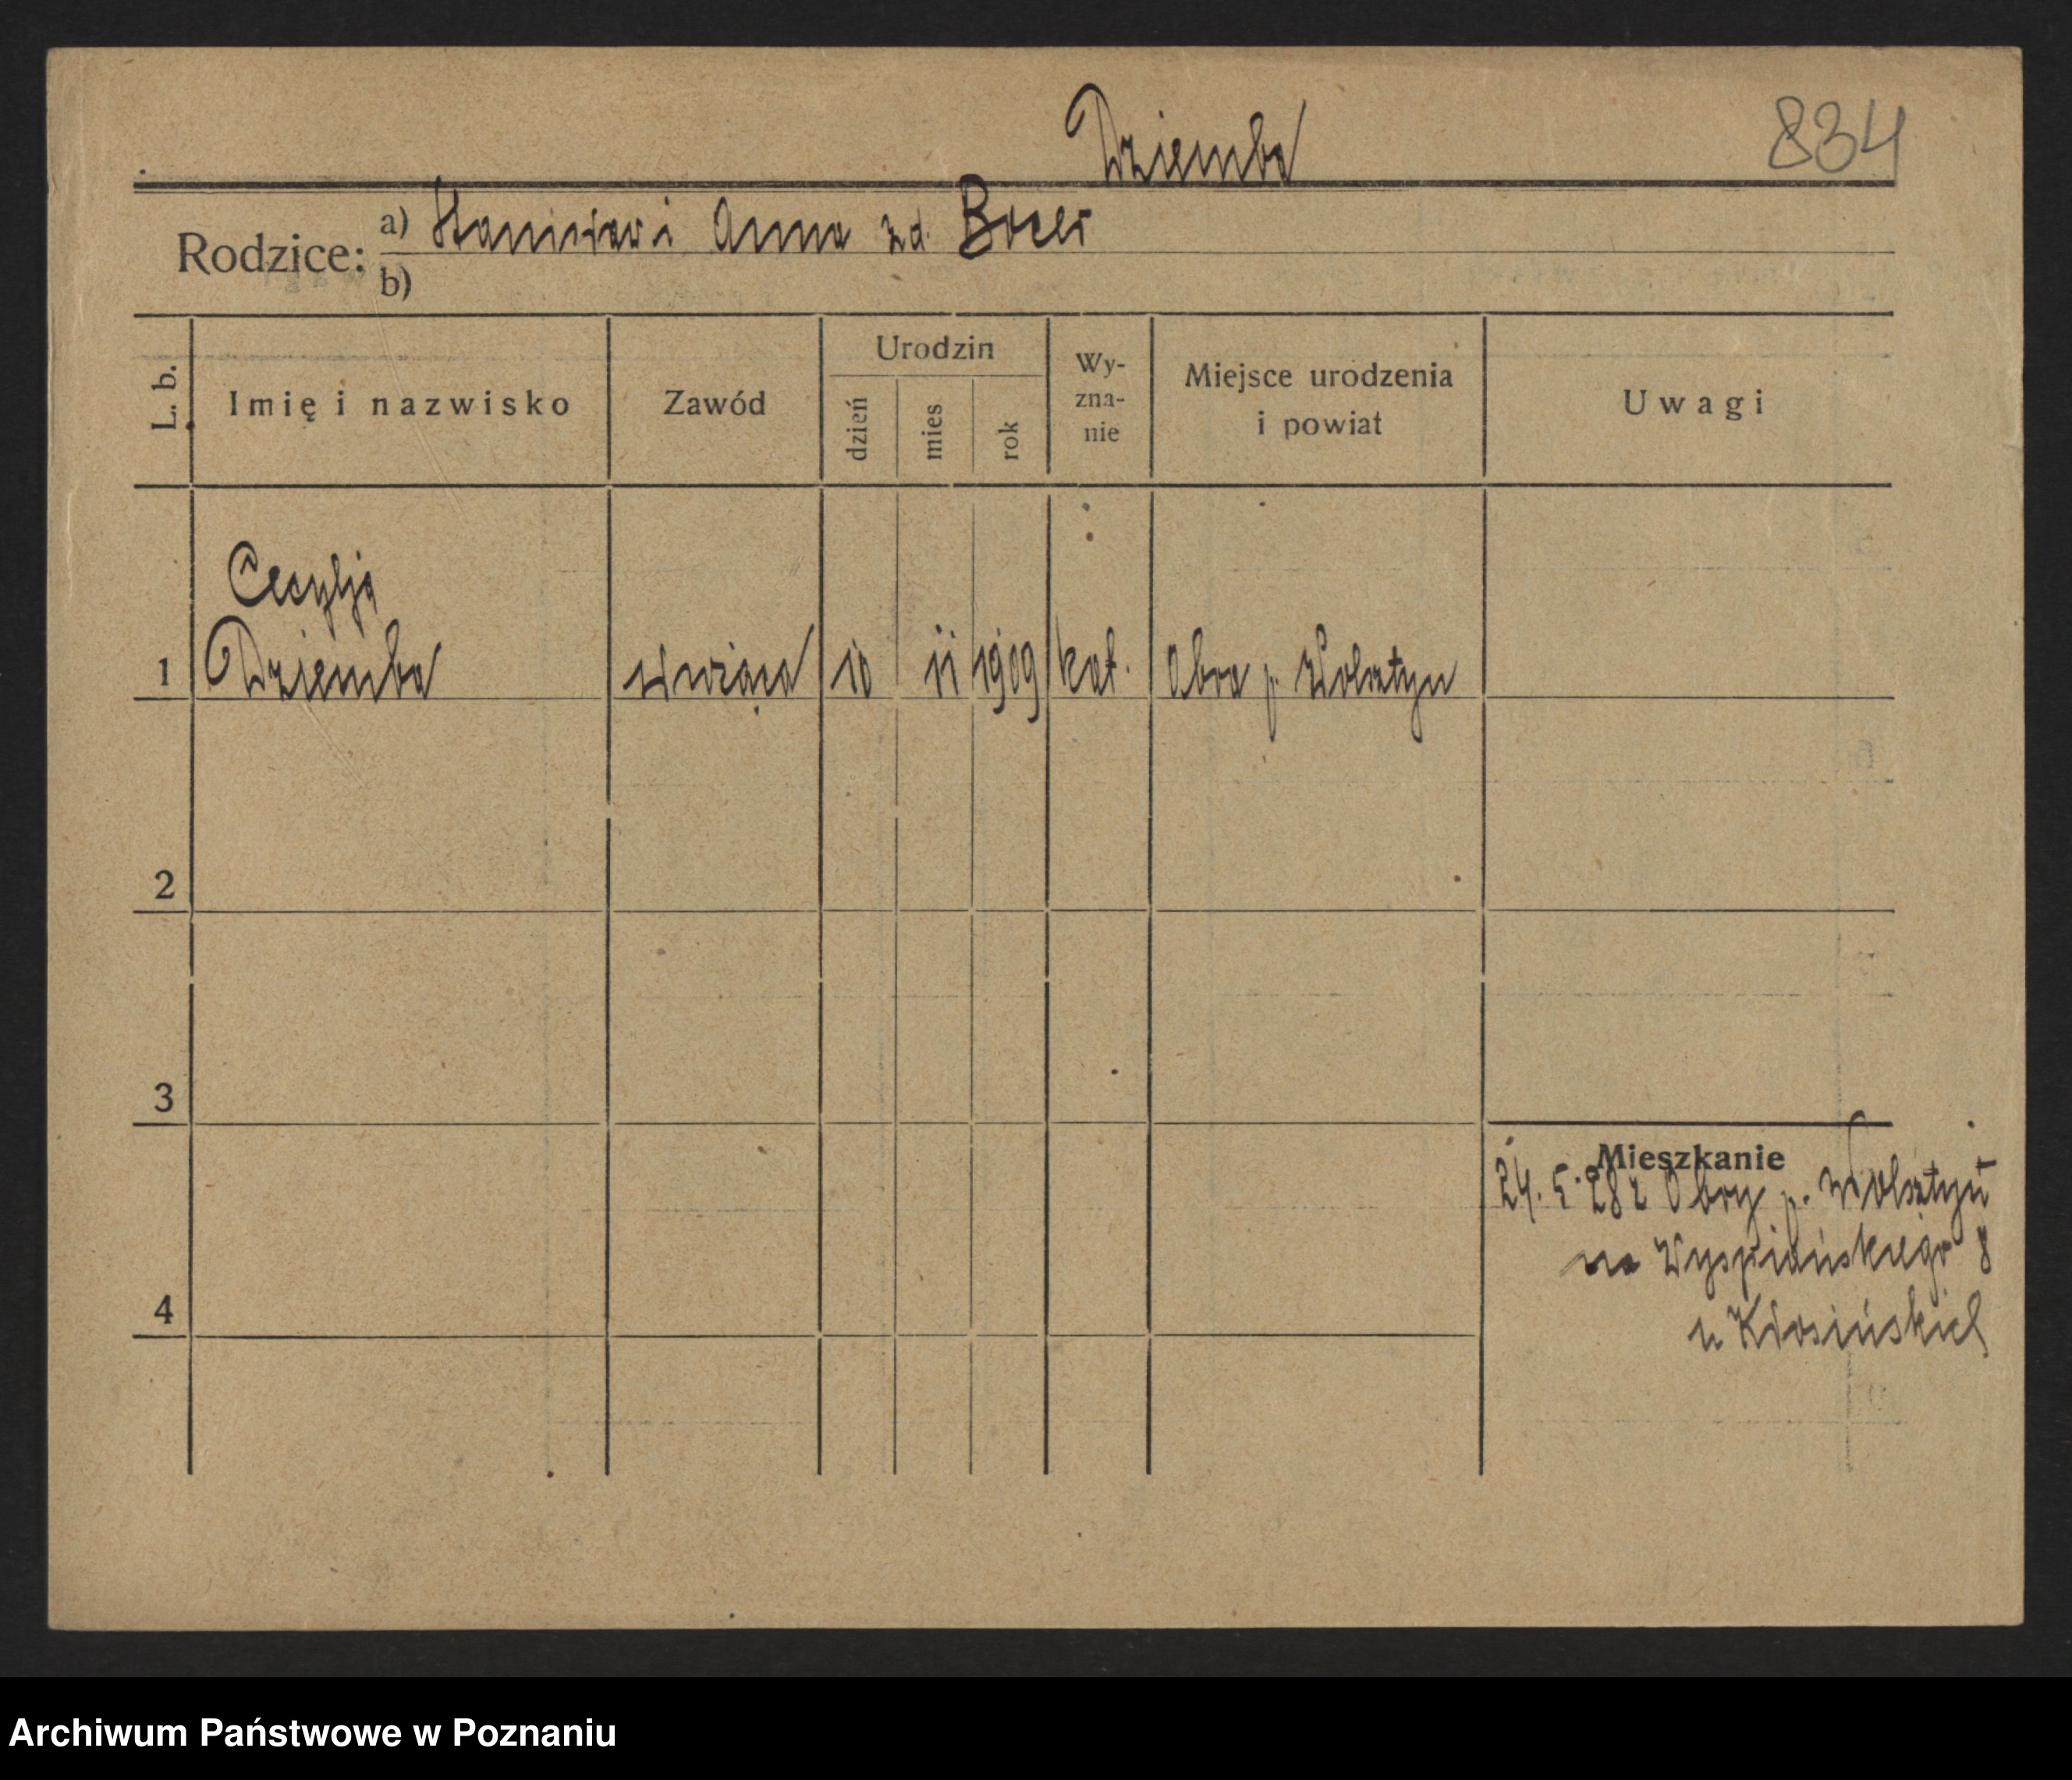 Dziemba 834
Rodzice: a) Stanisław i Anna zd.
b)
L. b. Imię i nazwisko Zawód Urodzin dzień mies rok Wy-zna-nie Miejsce urodzenia i powiat Uwagi
Cecylja
1 Dziemba służąca 10 11 1909 kat. Obra p. Wolsztyn
2
3
Mieszkanie
24. 5. 28 z Obry p. Wolsztyn
na Wyspiańskiego 8
u Kłosińskich
4
Archiwum Państwowe w Poznaniu